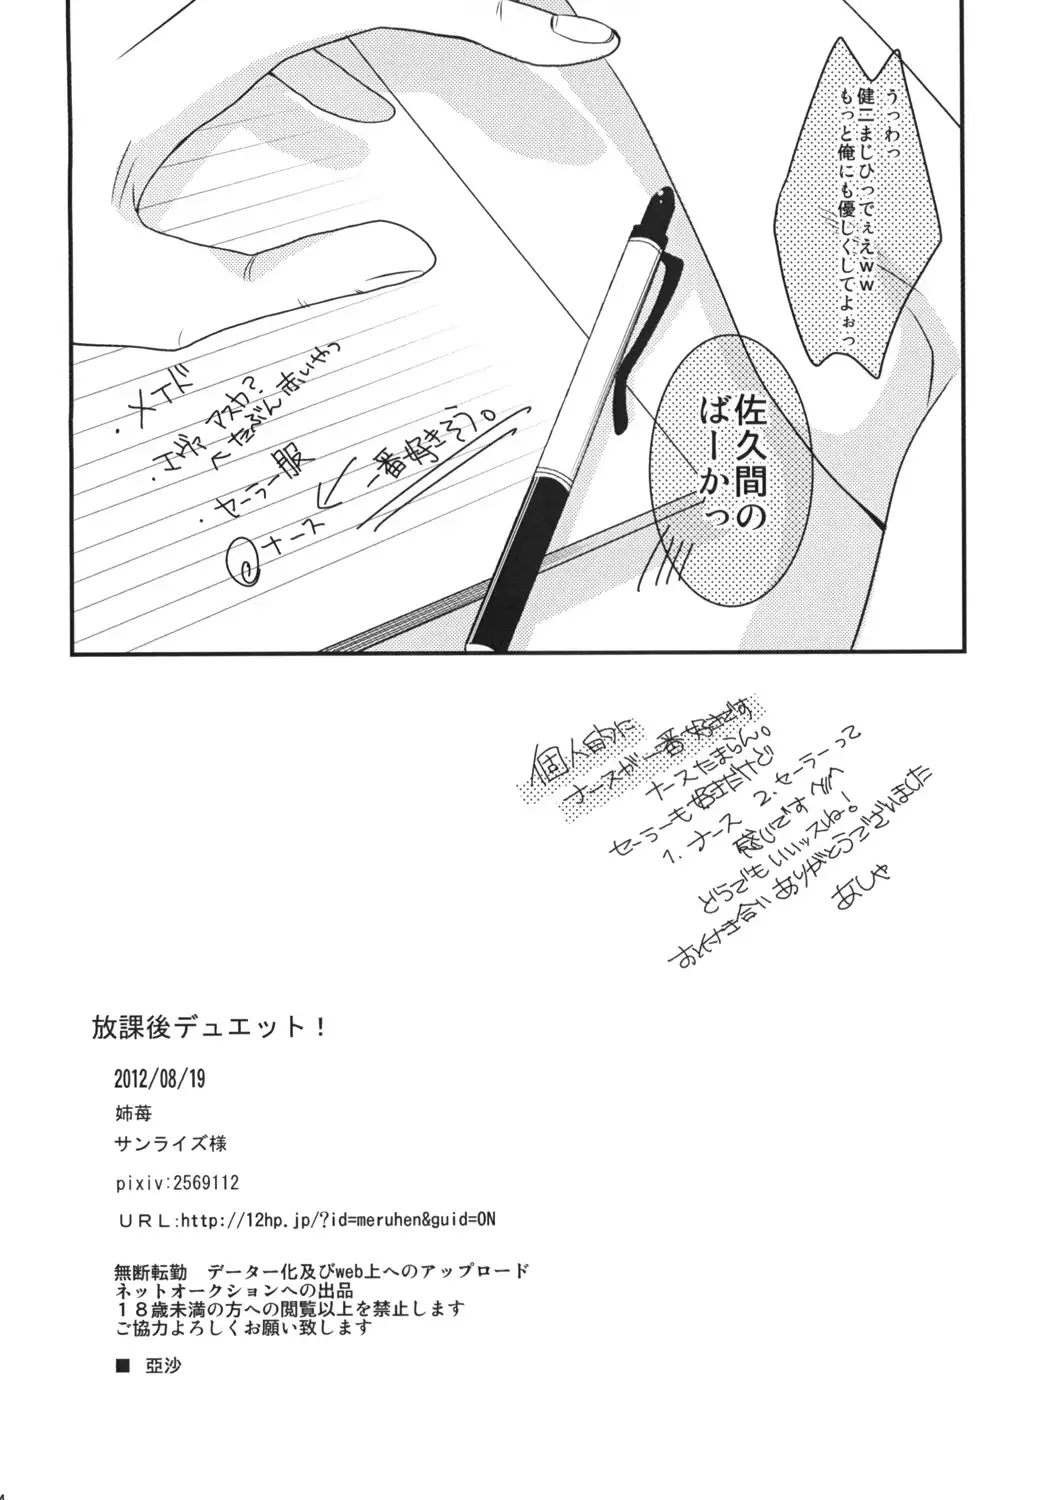 うっわっ
健二まじひってぇえｗｗ
もっと俺にも優しくしてよぉっ
佐久間の
ばーかっ
・メイド
・エヴァ アスカ？
↖たぶん赤いやつ
・セーラー服
ナース ← 一番好きそう。
個人的に
ナースが一番好きです
ナースたまらん。
セーラーも好きだけど
1. ナース 2. セーラーって
感じです
どらでもいいッスね！
お付き合いありがとうございました
あしゃ
放課後デュエット！
2012/08/19
姉苺
サンライズ様
pixiv:2569112
ＵＲＬ:http://12hp.jp/?id=meruhen&guid=ON
無断転勤　データー化及びweb上へのアップロード
ネットオークションへの出品
１８歳未満の方への閲覧以上を禁止します
ご協力よろしくお願い致します
■ 亞沙